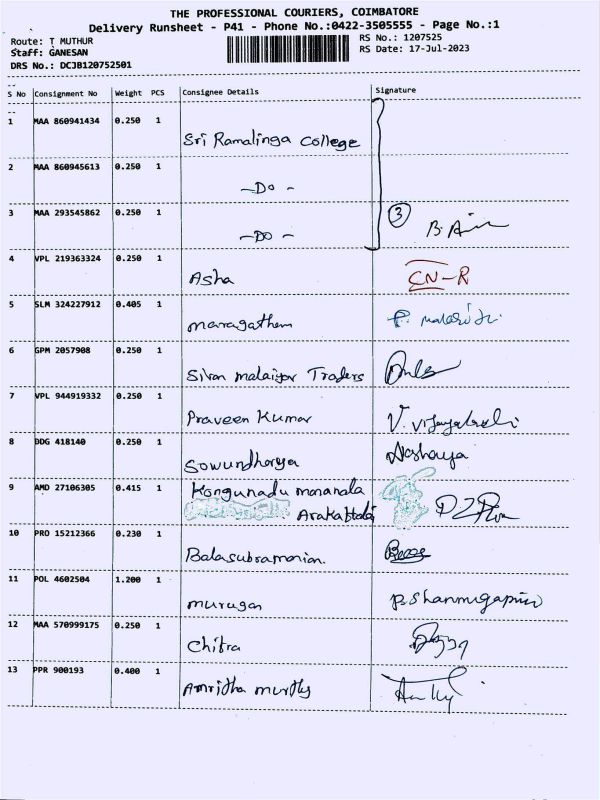 THE PROFESSIONAL COURIERS, COIMBATORE
Delivery Runsheet - P41 - Phone No.:0422-3505555 - Page No.:1
Route: T MUTHUR
RS No.: 1207525
Staff: GANESAN
RS Date: 17-Jul-2023
DRS No.: DCJB120752501
S No Consignment No Weight PCS Consignee Details Signature
1 MAA 860941434 0.250 1
Sri Ramalinga College
2 MAA 860945613 0.250 1
-Do-
3 MAA 293545862 0.250 1 3
-Do-
4 VPL 219363324 0.250 1
Asha CN-R
5 SLM 324227912 0.405 1
maragatham
6 GPM 2057908 0.250 1
Sivan malaiyar Traders
7 VPL 944919332 0.250 1
Praveen Kumar
8 DDG 418140 0.250 1 Akshaya
Sowundharya
9 AMD 27106305 0.415 1 Kongunadu
Arakattalai
10 PRO 15212366 0.230 1
Balasubramanian
11 POL 4602504 1.200 1
murugan P.Shanmugapriya
12 MAA 570999175 0.250 1
Chitra
13 PPR 900193 0.400 1
Amritha murthy